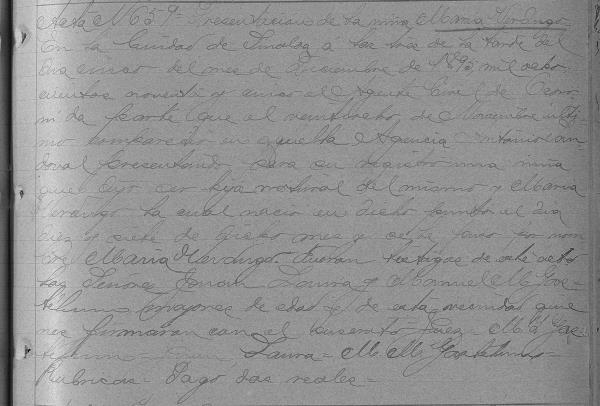 Acta No 59 = Presentacion de la niña Maria Verdugo
En la Ciudad de Sinaloa á las tres de la tarde del
dia cinco del mes de Diciembre de 1895 mil ocho-
cientos noventa y cinco el Agente Civil de Ocoro
ni da parte que el veintiocho de Noviembre ulti
mo comparecio en aquella Agencia Antonio San-
doval presentando para su registro una niña
que dijo ser hija natural del mismo y Maria
Verdugo la cual nacio en dicho punto el dia
diez y siete de dicho mes y se le puso por nom
bre Maria Verdugo. Fueron testigos de este acto
los Señores Juan Laura y Manuel M. Gas-
telum mayores de edad y de esta vecindad que
nes firmaron con el suscrito Juez = M. A. Gas-
telum = Juan Laura = M. M. Gastelum =
Rubricas = Pago dos reales =